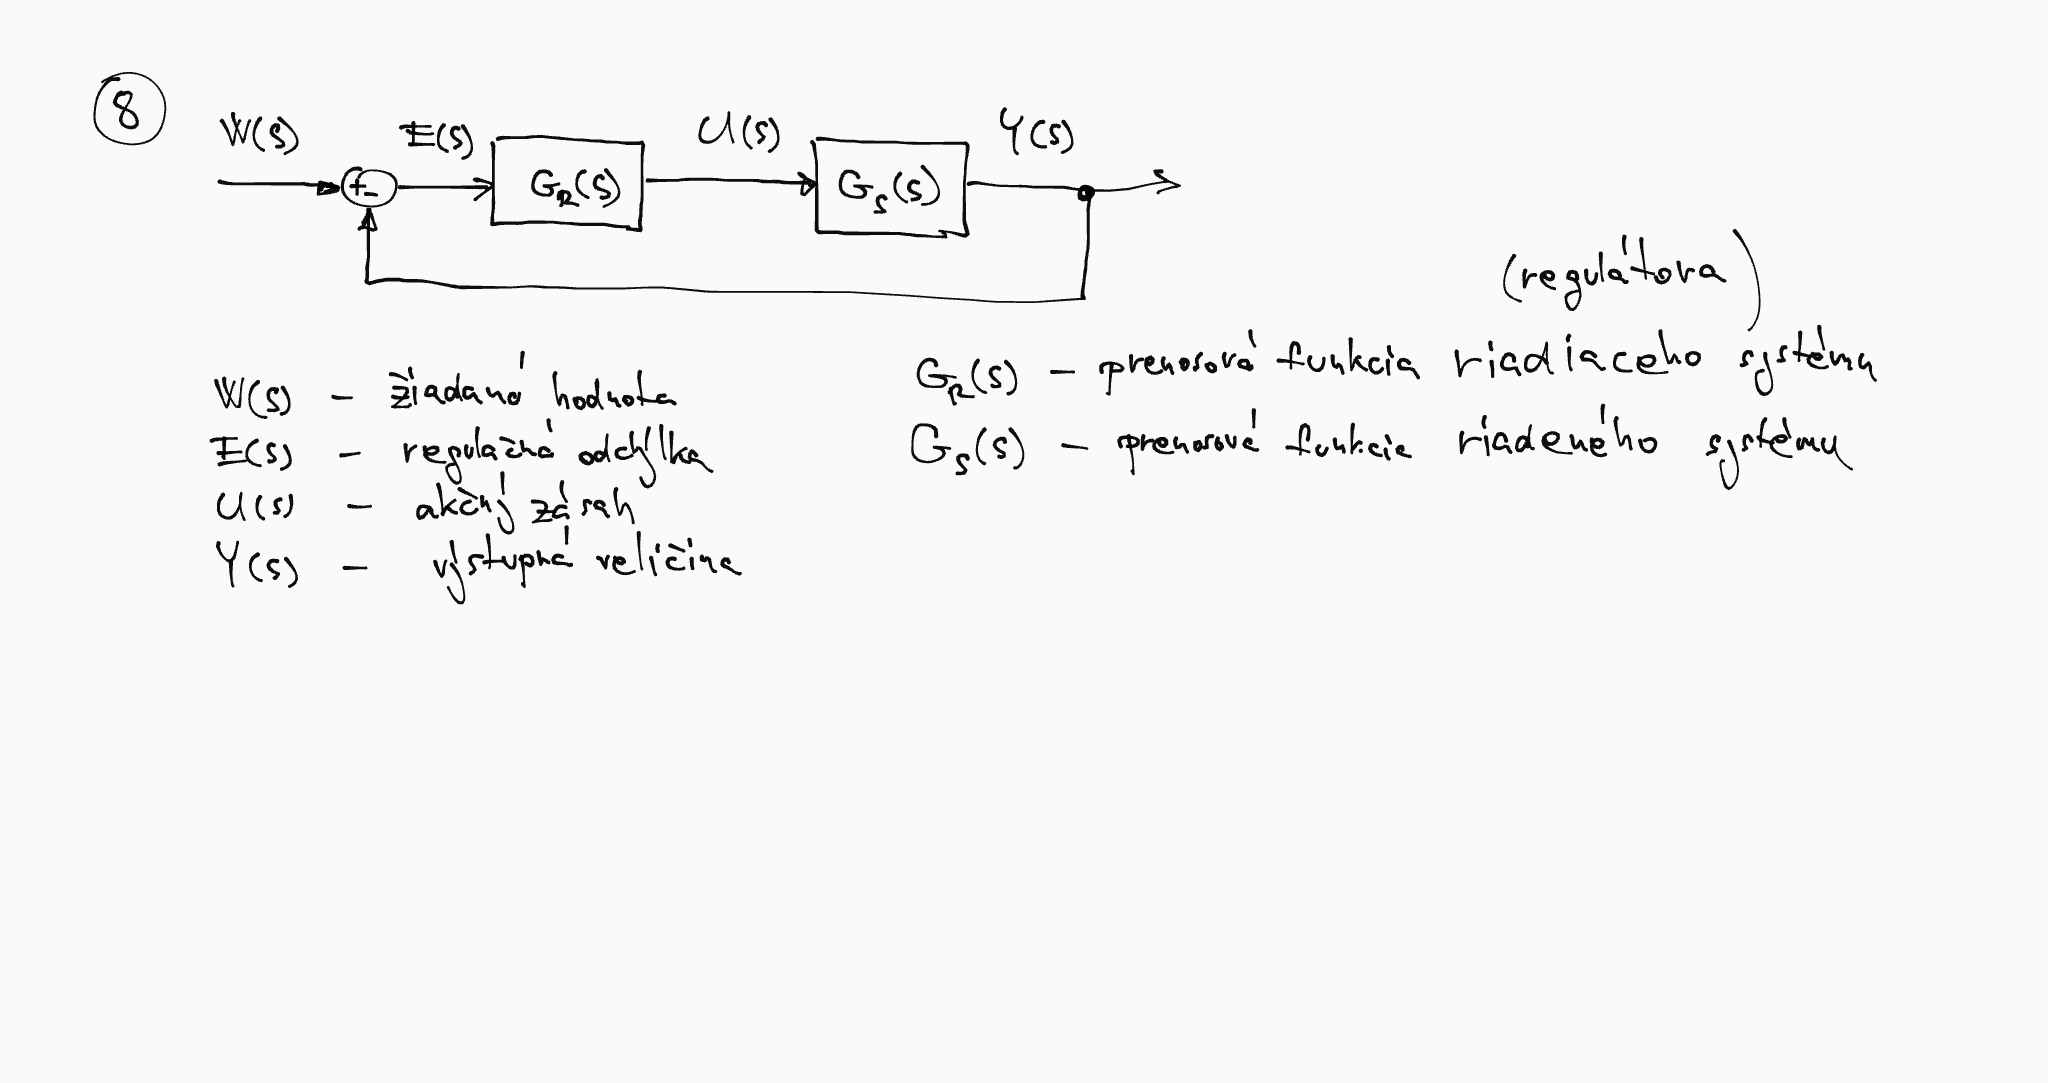 8
W(s) E(s) U(s) Y(s)
+ - G_R(s) G_S(s)
(regulátora)
W(s) - žiadaná hodnota
E(s) - regulačná odchýlka
U(s) - akčný zásah
Y(s) - výstupná veličina
G_R(s) - prenosová funkcia riadiaceho systému
G_S(s) - prenosová funkcia riadeného systému